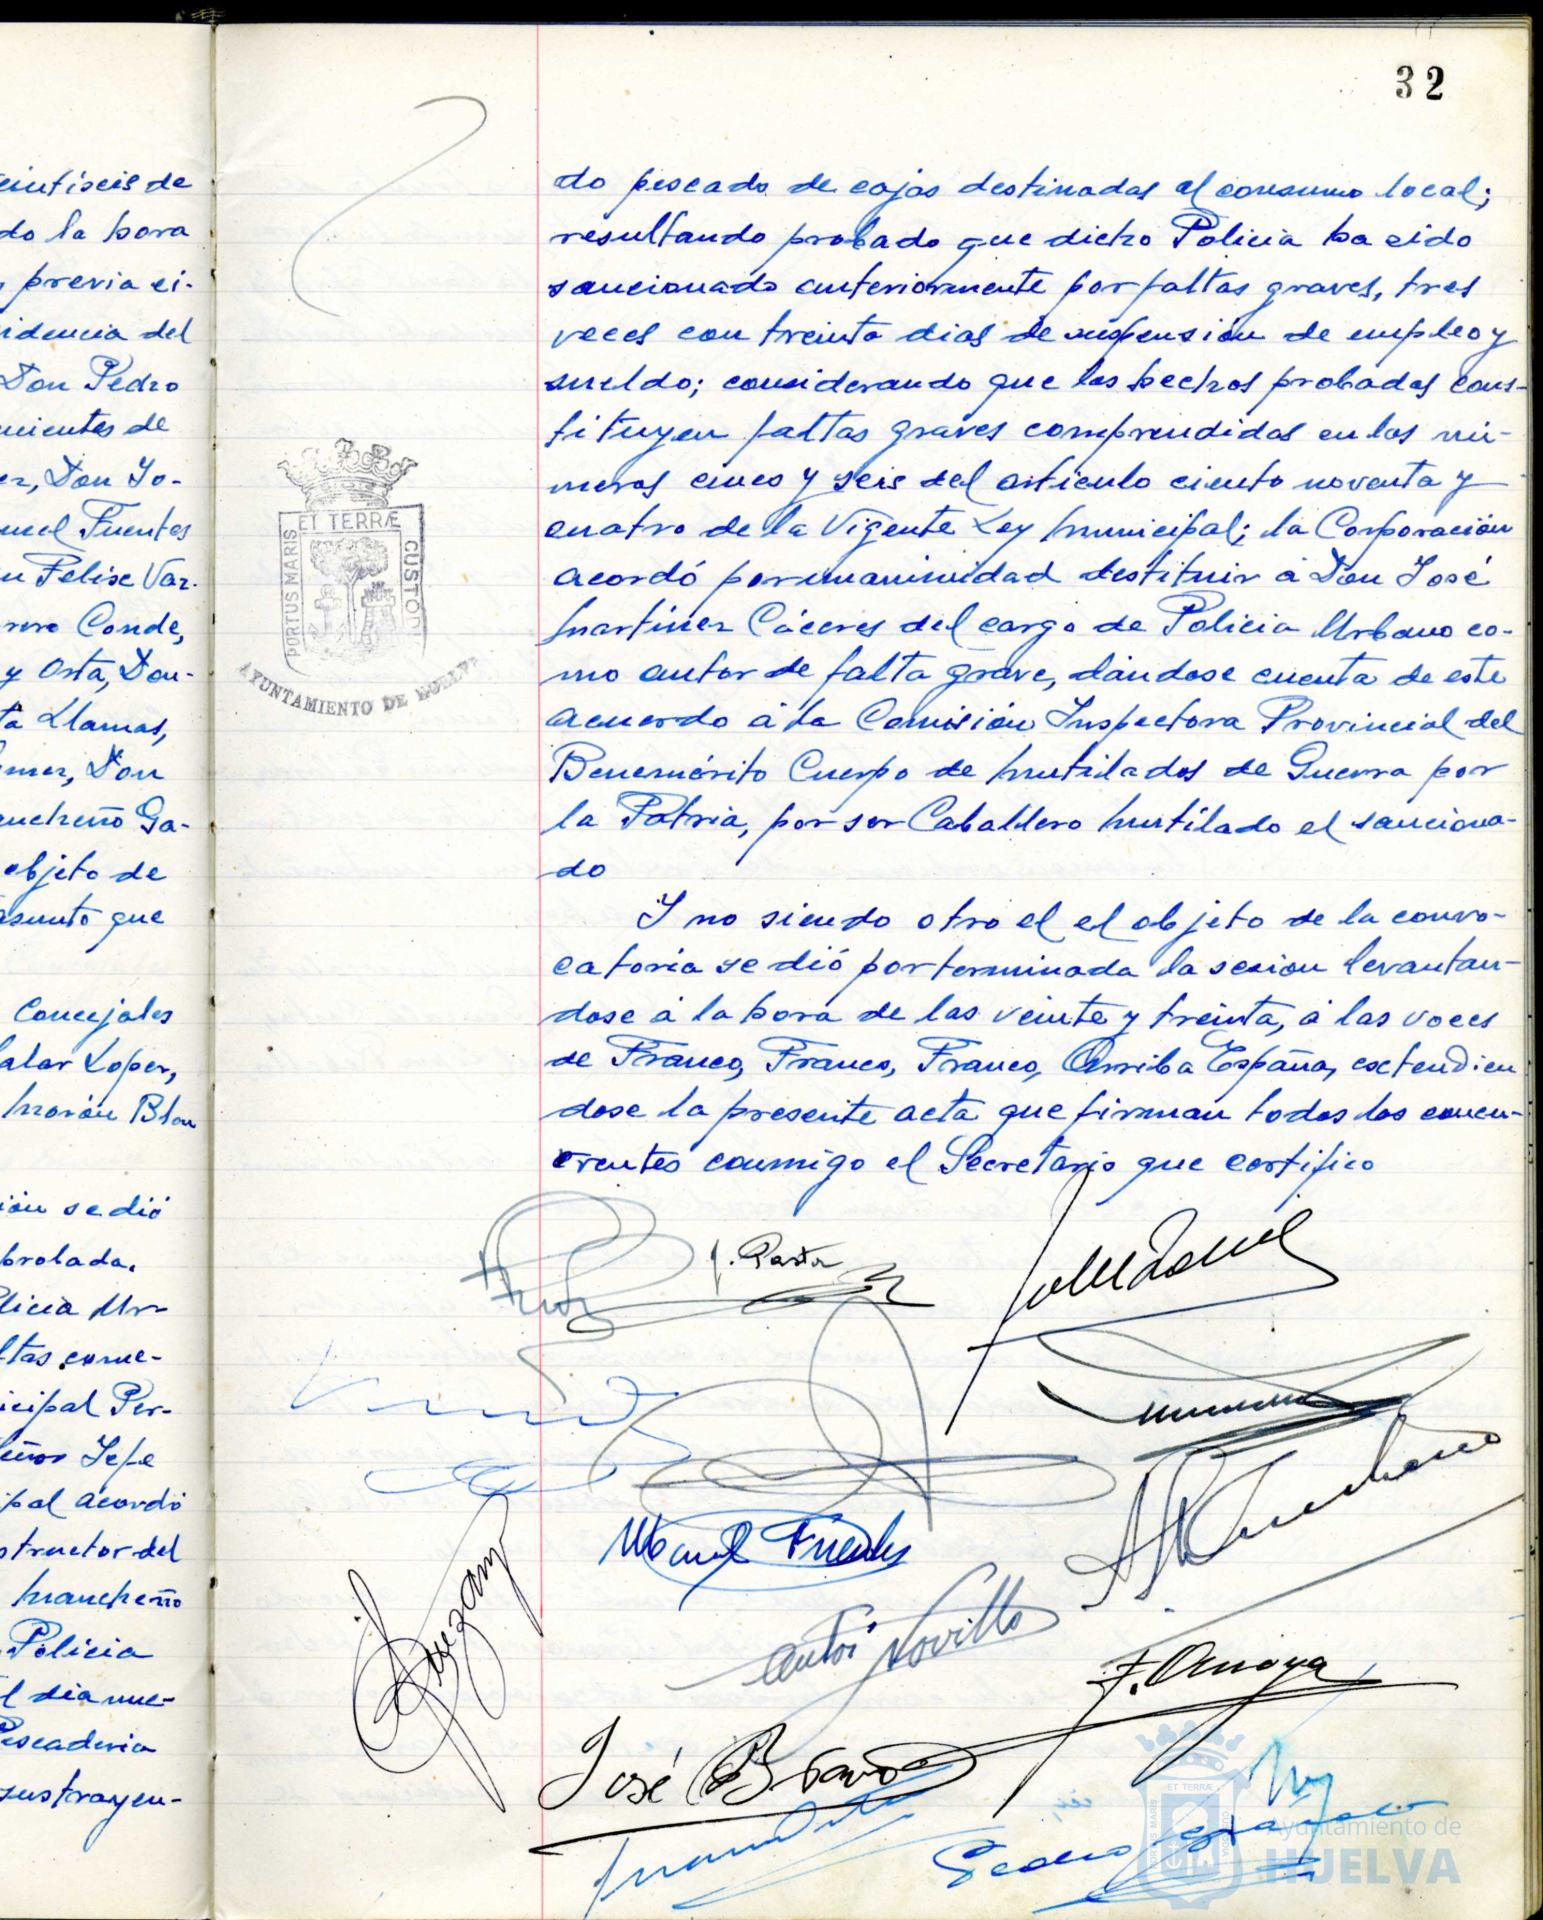 eintiseis de
do la hora
previa ci-
idencia del
Don Pedro
nientes de
ez, Don Jo-
nuel Fuentes
n Felise Vaz-
rero Conde,
y Orta, Don-
ta Llamas,
mez, Don
ancheño Ga-
objeto de
asunto que
Concejales
alar Lopez,
Morón Blan
ión se dió
brolada.
licia Ur-
ltas come-
icipal Per-
eñor Jefe
ipal acordó
structor del
Mancheño
Policia
l dia nue-
Pescaderia
sustrayen-
32
do pescado de cajas destinadas al consumo local;
resultando probado que dicho Policia ha sido
sancionado anteriormente por faltas graves, tres
veces con treinta dias de suspensión de empleo y
sueldo; considerando que los hechos probados cons-
tituyen faltas graves comprendidas en los nú-
meros cinco y seis del articulo ciento noventa y
cuatro de la Vigente Ley Municipal; la Corporación
acordó por unanimidad destituir á Don José
Martínez Cáceres del cargo de Policia Urbano co-
mo autor de falta grave, dándose cuenta de este
acuerdo á la Comisión Inspectora Provincial del
Benemérito Cuerpo de Mutilados de Guerra por
la Patria, por ser Caballero Mutilado el sanciona-
do
Y no siendo otro el el objeto de la convo-
catoria se dió por terminada la sesion levantan-
dose á la hora de las veinte y treinta, á las voces
de Franco, Franco, Franco, Arriba España, extendien
dose la presente acta que firman todos los concu-
rrentes conmigo el Secretario que certifico
PORTUS MARIS ET TERRÆ CUSTODI
AYUNTAMIENTO DE HUELVA
J. Pastor
Manuel Fuentes
Antº Novillo
F. Amaya
José Bravo
Pedro
PORTUS MARIS ET TERRÆ CUSTODIA
Ayuntamiento de
HUELVA